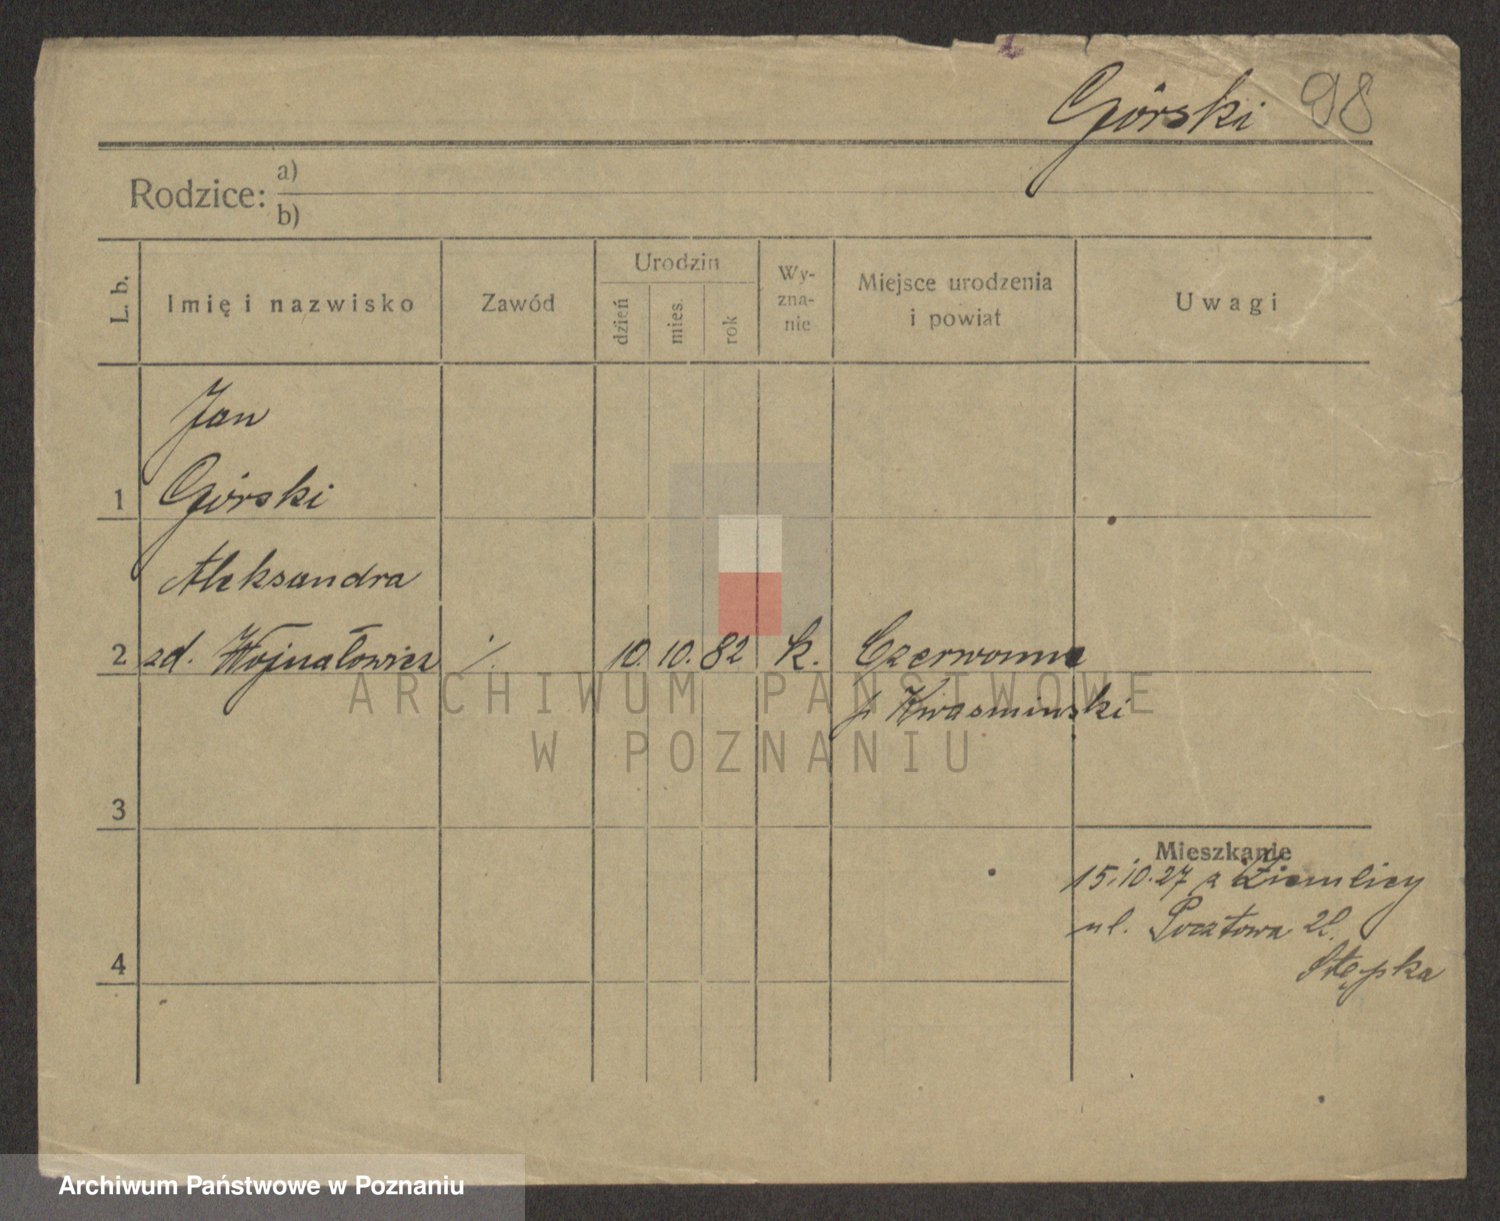 Górski 98
Rodzice: a)
b)
L. b.
Imię i nazwisko
Zawód
Urodzin
dzień
mies.
rok
Wy-
zna-
nie
Miejsce urodzenia
i powiat
Uwagi
Jan
1 Górski
Aleksandra
2 zd. Wojnałowicz ./. 10. 10. 82 k. Czerwonne
p. Kwasminski
ARCHIWUM PAŃSTWOWE
W POZNANIU
3
Mieszkanie
15.10.27 z
ul. Pocztowa 21.
4
Stępka
Archiwum Państwowe w Poznaniu